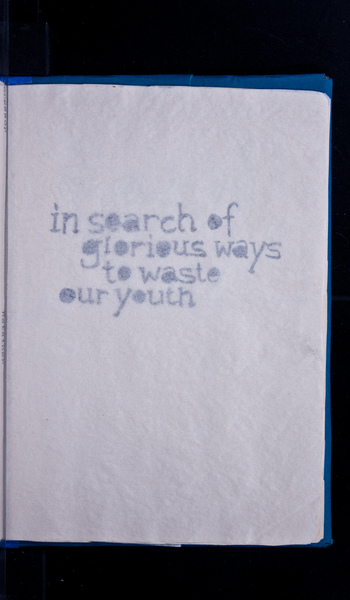 in search of
glorious ways
to waste
our youth